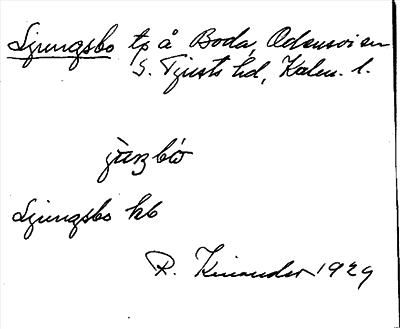 Ljungsbo tp å Boda, Odensvi sn
S. Tjusts hd, Kalm. l.
Ljungsbo kb
R. Kinander 1929